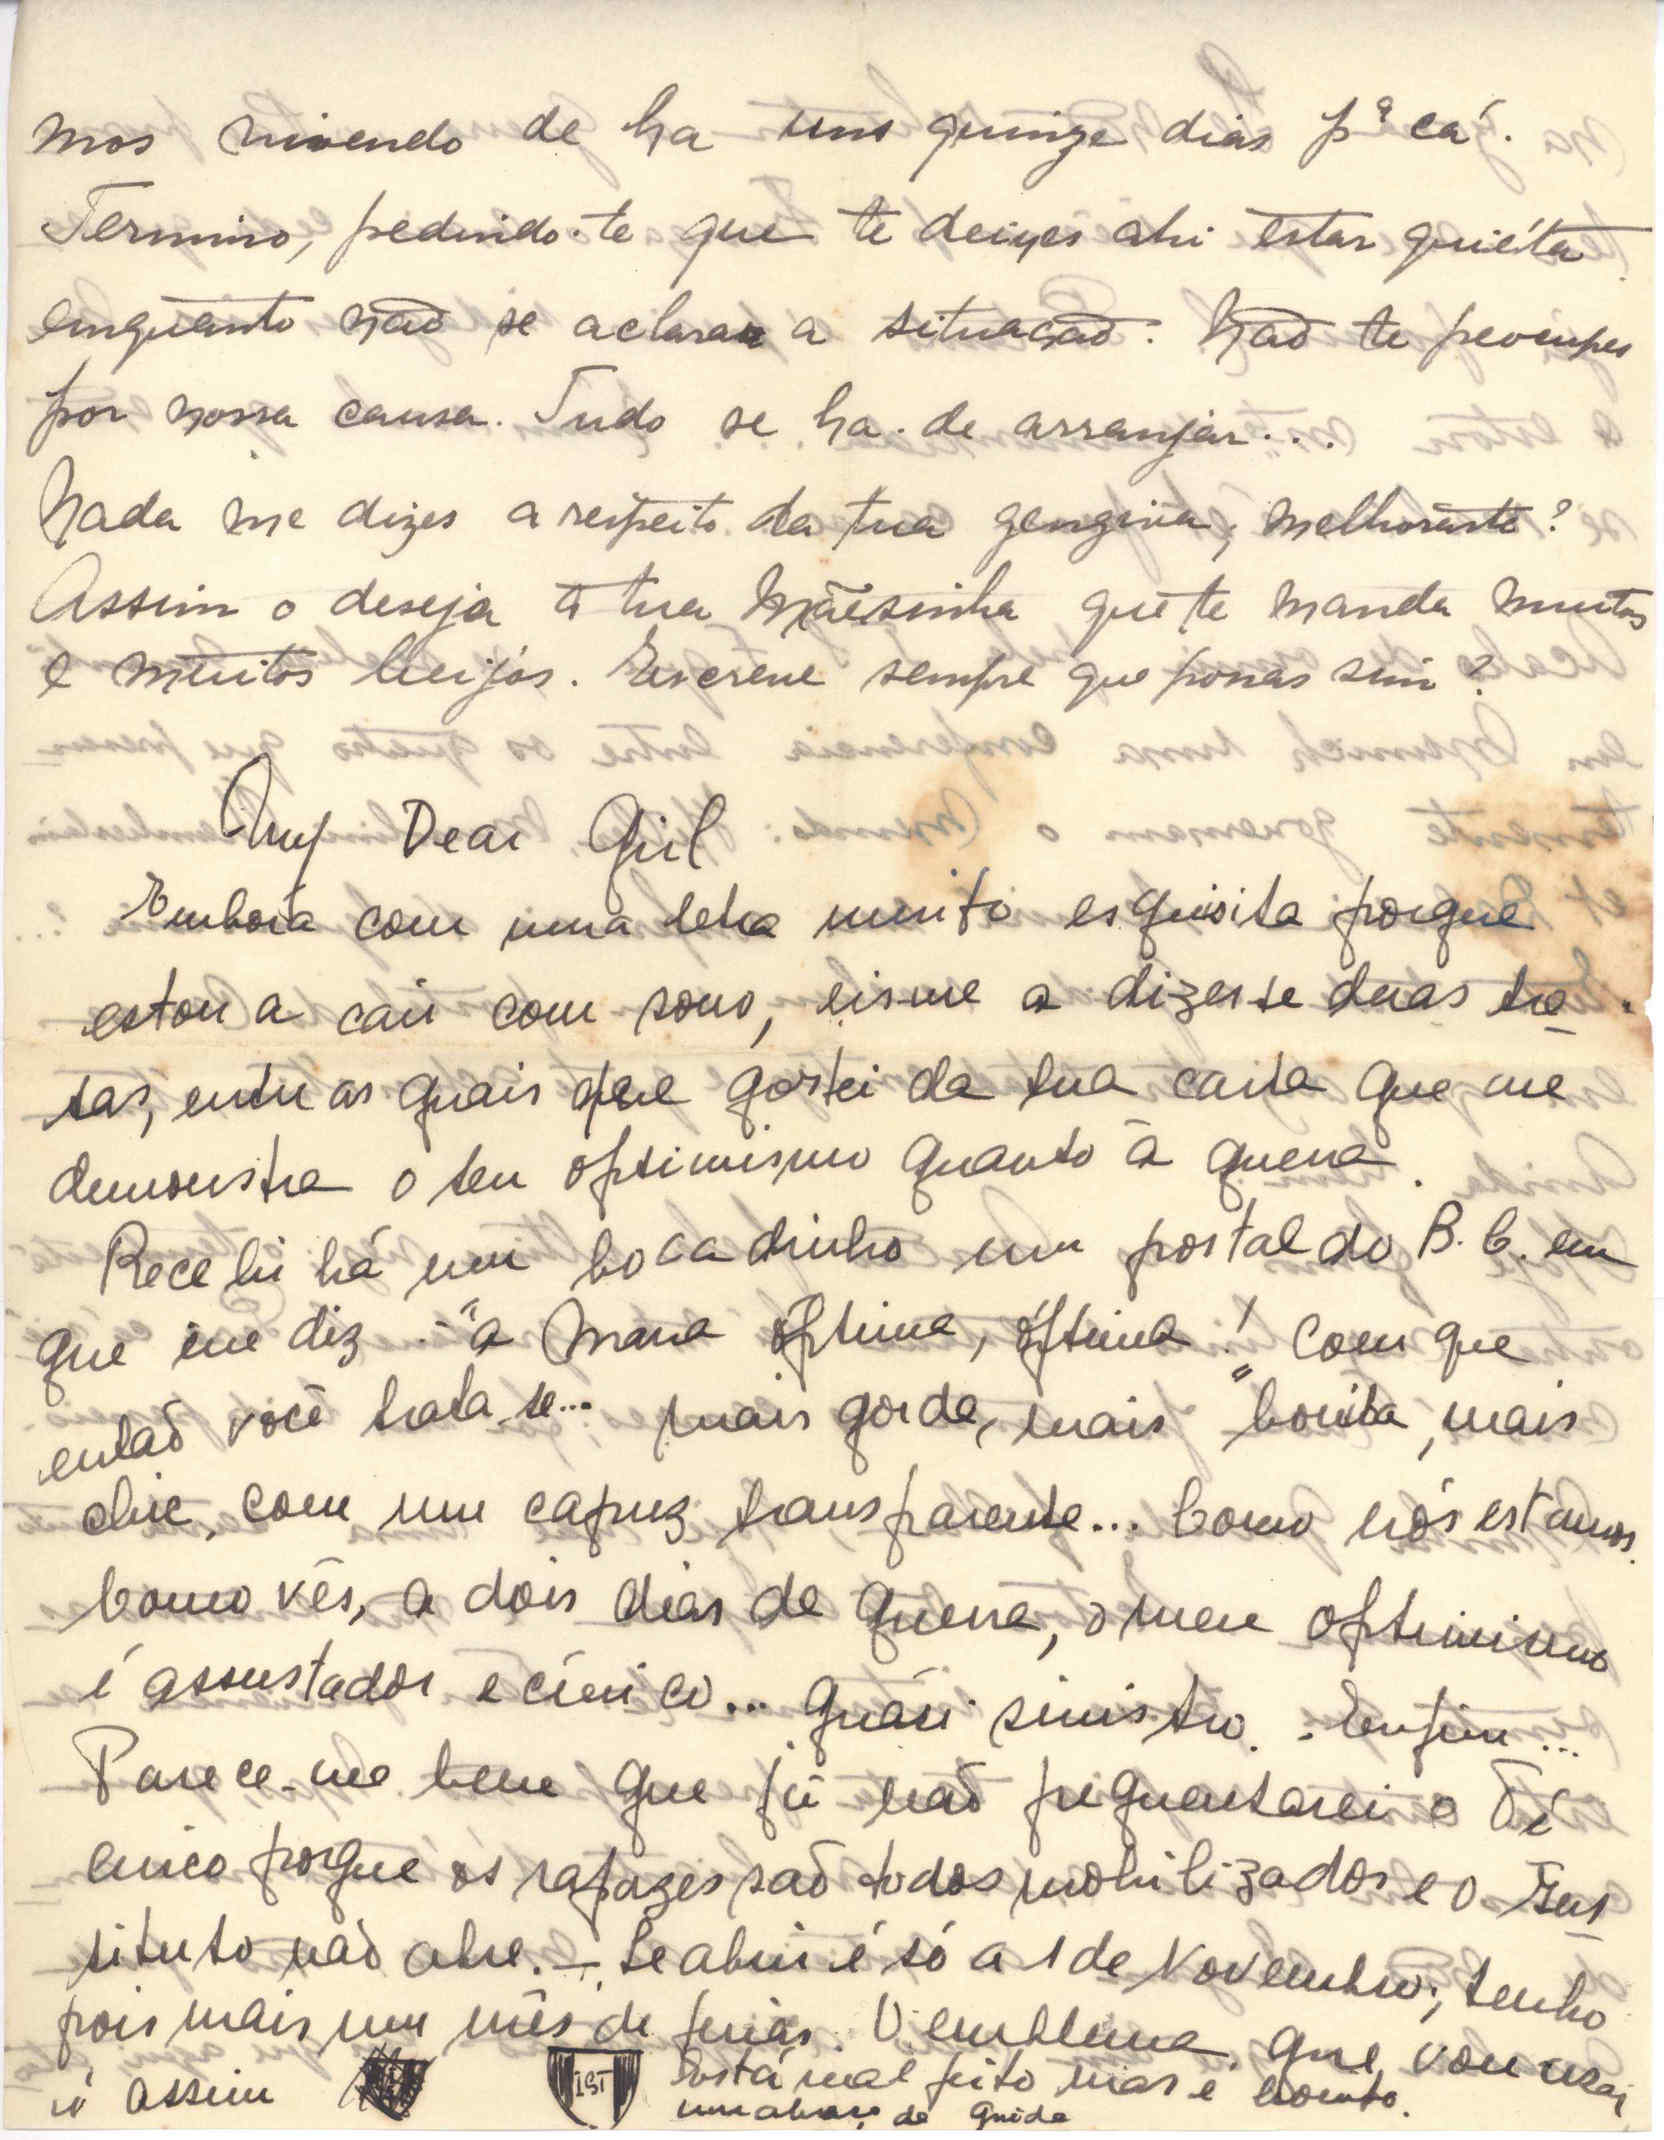 mos vivendo de ha uns quinze dias pª cá.
Termino, pedindo-te que te deixes ahi estar quiéta
emquanto não se aclarar a situação. Não te preocupes
por nossa causa. Tudo se ha-de arranjar...
Nada me dizes a respeito da tua gengiva, melhoraste?
Assim o deseja a tua Mãesinha que te manda muitos
e muitos beijos. Escreve sempre que possas sim?
My Dear Girl
Embora com uma letra muito esquisita porque
estou a cair com sono, eis-me a dizer-te duas tre-
tas, entre as quais que gostei da tua carta que me
demonstra o teu optimismo quanto à guerra.
Recebi há um bocadinho um postal do B. C. em
que me diz - "a Mana óptima, óptima!" Com que
então você trata-se... mais gorda, mais bonita, mais
chic, com um capuz transparente... Como nós estamos.
Como vês, a dois dias de guerra, o meu optimismo
é assustador e cínico... quási sinistro. - Enfim...
Parece-me bem que já não frequentarei o Té
cnico porque os rapazes são todos mobilizados e o Ins
tituto não abre. - Se abrir é só a 1 de Novembro; tenho
pois mais um mês de ferias. O emblema que vou usar
é assim IST Está mal feito mas é bonito.
um abraço da Guida